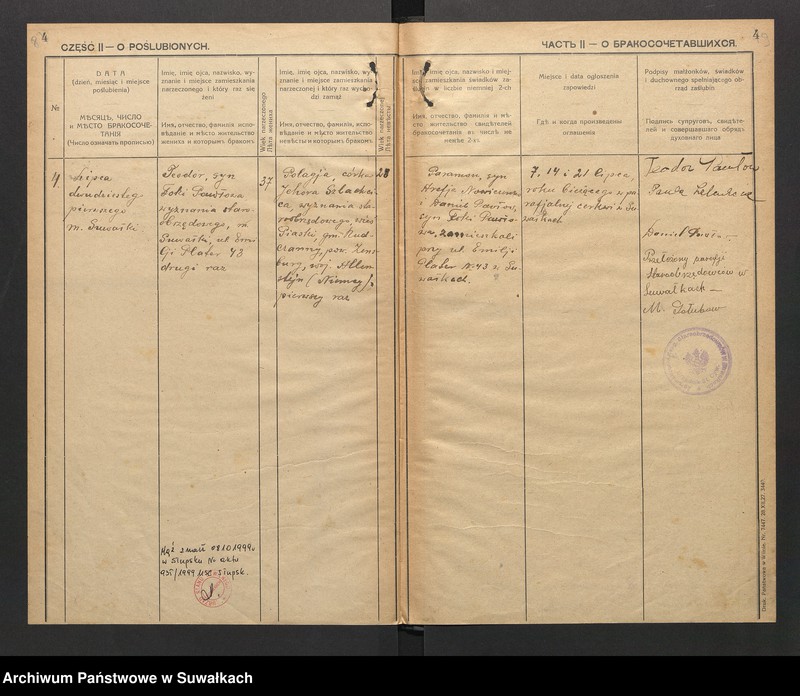 4
4
CZĘŚĆ II — O POŚLUBIONYCH.
ЧАСТЬ II — О БРАКОСОЧЕТАВШИХСЯ.
№
DATA
(dzień, miesiąc i miejsce
poślubienia)
МѢСЯЦЪ, ЧИСЛО
и МѢСТО БРАКОСОЧЕ-
ТАНІЯ
(Число означать прописью)
Imię, imię ojca, nazwisko, wy-
znanie i miejsce zamieszkania
narzeczonego i który raz się
żeni
Имя, отчество, фамилія испо-
вѣданіе и мѣсто жительство
жениха и которымъ бракомъ
Wiek narzeczonego
Лѣта жениха
Imię, imię ojca, nazwisko, wy-
znanie i miejsce zamieszkania
narzeczonej i który raz wycho-
dzi zamąż
Имя, отчество, фамилія, испо-
вѣданіе и мѣсто жительство
невѣсты и которымъ бракомъ
Wiek narzeczonej
Лѣта невѣсты
Imię, imię ojca, nazwisko i miej-
sce zamieszkania świadków za-
w liczbie niemniej 2-ch
Имя, отчество, фамилія и мѣ-
сто жительство свидѣтелей
бракосочетанія въ числѣ не
менѣе 2-хъ
Miejsce i data ogłoszenia
zapowiedzi
Гдѣ и когда произведены
оглашенія
Podpisy małżonków, świadków
i duchownego spełniającego ob-
rząd zaślubin
Подпись супруговъ, свидѣте-
лей и совершавшаго обрядъ
духовнаго лица
4.
Lipca
dwudziesteg
pierwszego
m. Suwałki.
Teodor, syn
Foki Pawłowa
wyznania staro-
obrzędowego, m.
Suwałki, ul. Emi-
lji Plater 43
drugi raz
37
Pelagja, córka
Sta-
roobrzędowego, wieś
Piaski, gm. Rud-
czanny, pow. Zens-
burg, woj. Allen-
stejn (Niemcy),
pierwszy raz
28
Paramon, syn
i Daniel Pawłow,
syn Foki Pawło-
wa, zamieszkali
przy ul. Emilji
Plater № 43 w Su-
wałkach.
7, 14 i 21 lipca,
roku bieżącego w pa-
rafjalnej cerkwi w Su-
wałkach
Teodor Pawłow
Daniel Pawłow
Przełożony parafji
Staroobrzędowców w
Suwałkach —
M.
Mąż zmarł 08.10.1999r
w Słupsku Nr aktu
935/1999 USC Słupsk.
Druk. Państwowa w Wilnie. Nr. 3447. 20.XII.27. 3447.
Archiwum Państwowe w Suwałkach